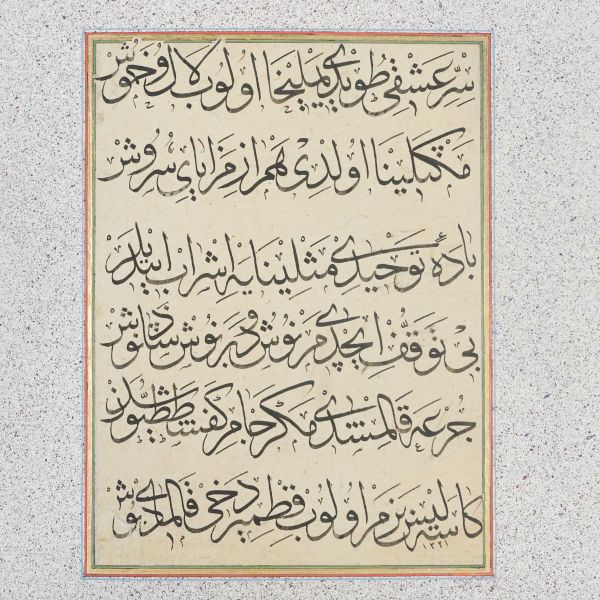 سِرِّ عَشقی طویدی یملیخا اولوب لال و خموش
مکثلینا اولدی همراز مزایای سروش
بادهٔ توحیدی مثلینایه اشراب ایتدیلر
بی توقف ایچدی مرنوش و دبرنوش شاذنوش
جرعه قالمشدی مکر جام کفشططیوشدن
کاسه لیس بزم اولوب قطمیر دخی قالمادی بوش
١٣٢١